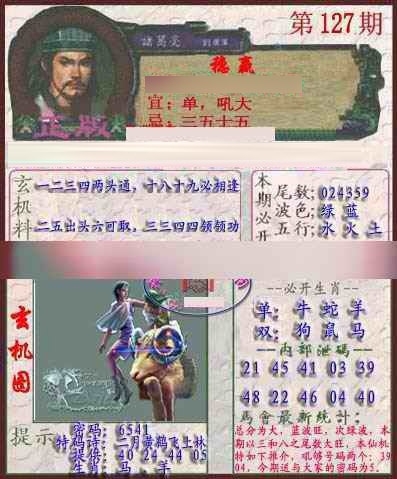 第127期
諸葛亮
稳赢
宜：单，吼大
忌：三五十五
正版
玄机料
一二三四两头通，十八十九必相逢
二五出头六可取，三三四四领领功
本期必开
尾数；024359
波色；绿 蓝
五行；水 火 土
玄机图
--必开生肖--
单：牛 蛇 羊
双：狗 鼠 马
--内部泄码--
21 45 41 03 39
48 22 46 04 40
馬會最新統计：
总分为大，蓝波旺，次绿波，本
期以三和八之尾数大旺，本仙机
特如下推介，吼够号码两个：39
04，今期送与大家的密码为5。
提示
密码：6541
特码诗：二月黄鹤飞上林
提供：40 24 44 05
生肖：马、羊